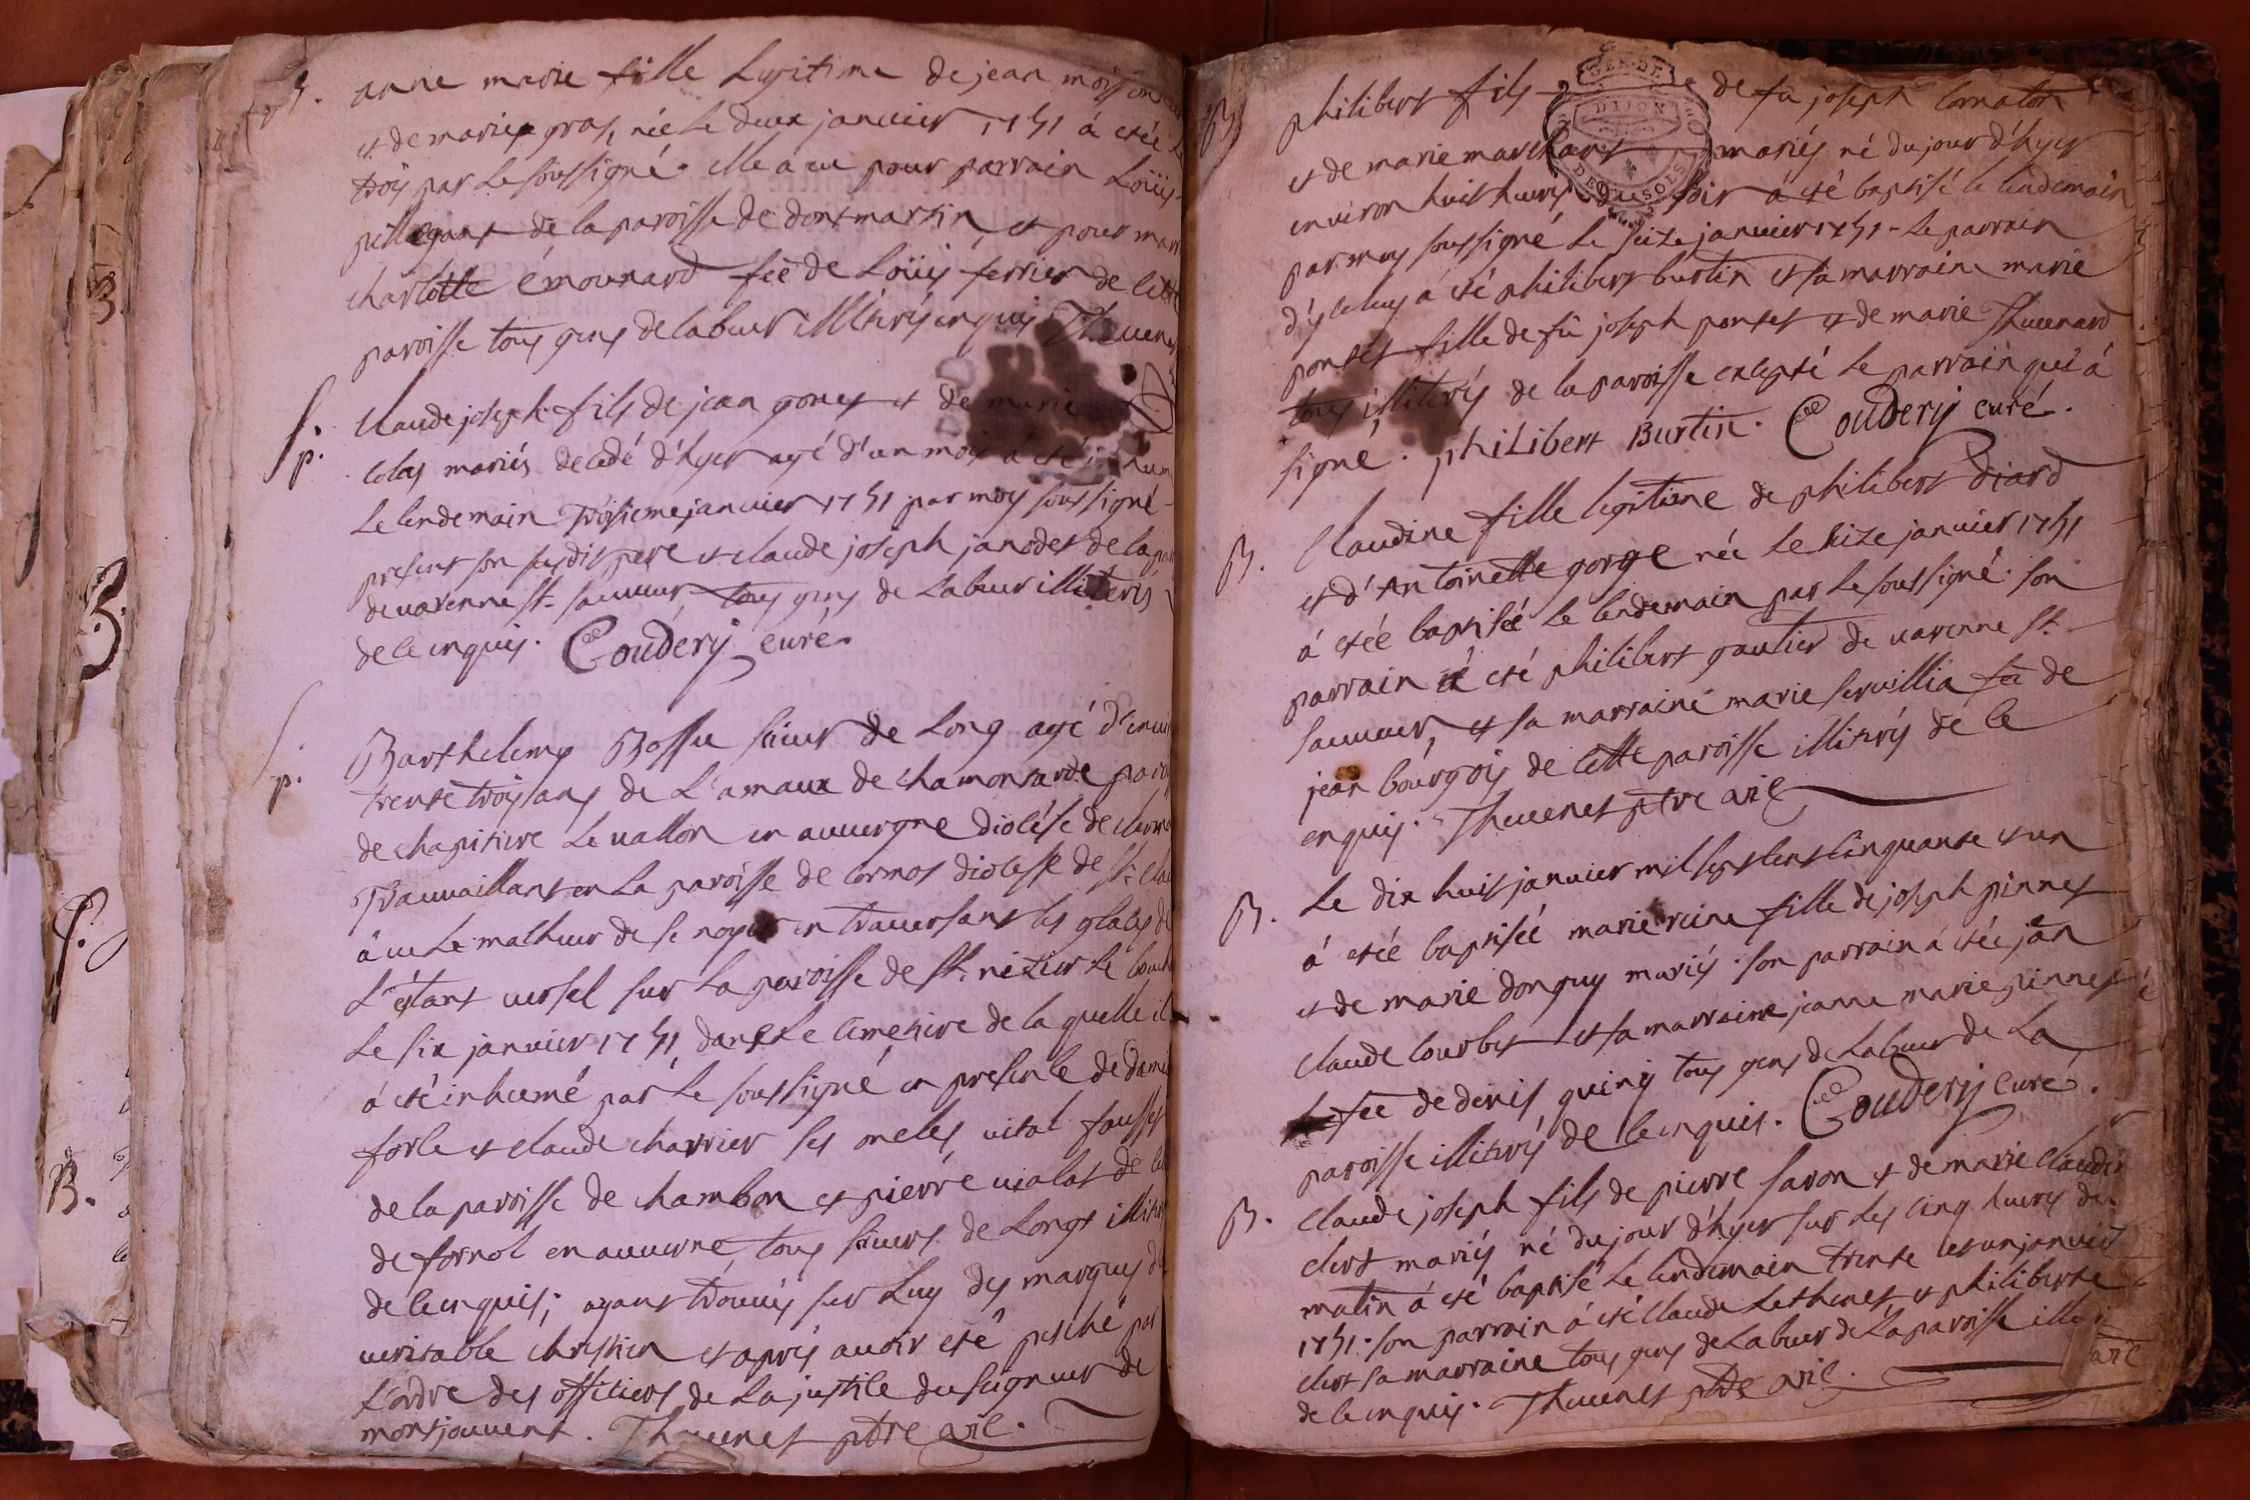 B. anne marie fille Legitime de jean
et de marie gras, née Le deux janvier 1751 á etée
trois par Le soussigné. elle a eu pour parrain Loüis
de la paroisse de dontmartin, et pour
charlotte émounard fee de Loüis ferrier de cette
paroisse tous gens de labeur illiterés enquis Theuenet
S. claude joseph fils de jean gonet et de marie
p. colas mariés decedé d'hyer agé d'un mois á eté
Le lendemain troisieme janvier 1751 par moy soussigné
present son susdit pere et claude joseph janodet de la
de varenne st. sauveur tous gens de Labeur illiterés
de ce enquis. Couderij curé.
S. Barthelemy Bossu sieur de Long agé d'
p. trente trois ans de L'amaux de chamonsarde
de chapitre Le vallon en auvergne diocése de
Travaillant en La paroisse de cormos diocesse de St.
á eu Le malheur de se noyer en traversant les glaces
L'étant versel sur La paroisse de St. nizier Le
Le six janvier 1751 dans Le cimetiere de la quelle il
á eté inhumé par Le soussigné en presence de
forle et claude charrier ses oncles, vital
de la paroisse de chambon et pierre vialat de
de fornol en auverne, tous sieurs de Longt
de ce enquis; ayant trouvés sur Luy des marques
veritable chrestien et aprés avoir eté pesché par
L'ordre des officiers de La justice du seigneur de
montjouvent. Theuenet ptre vic.
B. philibert fils de fu joseph cornaton
et de marie marchant mariés né du jour d'hyer
environ huit heures du soir á eté baptisé le lendemain
par moy soussigné Le seize janvier 1751 - Le parrain
d'yceluy á eté philibert burtin et sa marraine marie
ponset fille de fû joseph ponset et de marie Theuenard
tous illiterés de la paroisse excepté Le parrain qui á
signé. philibert Burtin. Couderij curé.
B. Claudine fille legitime de philibert Diard
et d'Antoinette gorge née Le seize janvier 1751
á etée baptisée Le lendemain par Le soussigné. son
parrain á eté philibert gautier de varenne st.
sauveur, et sa marraine marie servillia fee de
jean bourgois de cette paroisse illiterés de ce
enquis. Theuenet ptre vic
B. Le dix huit janvier mil sept cent cinquante et un
á etée baptisée marie reine fille de joseph pinnet
et de marie donguy mariés. son parrain á etée jean
claude courbet et sa marraine jeanne marie pinnet
fee de denis guiny tous gens de Labeur de La
paroisse illiterés de ce enquis. Couderij curé.
B. Claude joseph fils de pierre saron et de marie
clert mariés né du jour d'hyer sur Les cinq heures du
matin á eté baptisé Le lendemain trente et un janvier
1751. son parrain á eté claude Lethenet et philiberte
clert sa marraine tous gens de Labeur de La paroisse
de ce enquis. Theuenet ptre vic.